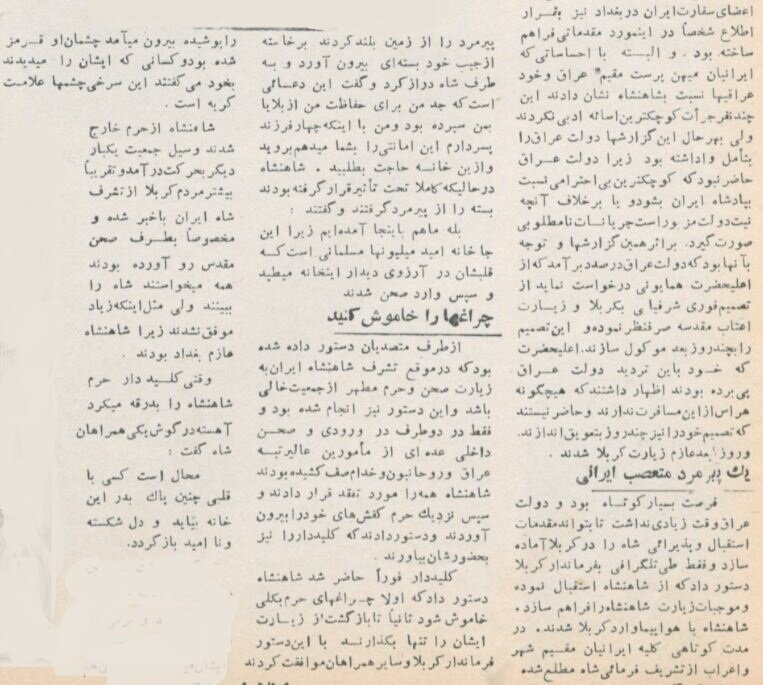 اعضای سفارت ایران در بغداد نیز بقرار
اطلاع شخصاً در اینمورد مقدماتی فراهم
ساخته بود . و البته با احساساتی که
ایرانیان میهن پرست مقیم عراق و خود
عراقیها نسبت بشاهنشاه نشان دادند این
چند نفر جرأت کوچکترین اسائه ادبی نکردند
ولی بهر حال این گزارشها دولت عراق را
بتأمل واداشته بود زیرا دولت عراق
حاضر نبود که کوچکترین بی احترامی نسبت
بپادشاه ایران بشود و یا برخلاف آنچه
نیت دولت مزبور است جریانات نامطلوبی
صورت گیرد. براثر همین گزارشها و توجه
بآنها بود که دولت عراق در صدد بر آمد که از
اعلیحضرت همایونی درخواست نماید از
تصمیم فوری شرفیابی بکربلا و زیارت
اعتاب مقدسه صرفنظر نموده و این تصمیم
را بچند روز بعد موکول سازند. اعلیحضرت
که خود باین تردید دولت عراق
پی برده بودند اظهار داشتند که هیچگونه
هراس از این مسافرت ندارند و حاضر نیستند
که تصمیم خود را نیز چند روز بتعویق اندازند.
و روز بعد عازم زیارت کربلا شدند .
یک پیر مرد متعصب ایرانی
فرصت بسیار کوتاه بود و دولت
عراق وقت زیادی نداشت تا بتواند مقدمات
استقبال و پذیرائی شاه را در کربلا آماده
سازد و فقط طی تلگرافی بفرماندار کربلا
دستور داد که از شاهنشاه استقبال نموده
و موجبات زیارت شاهنشاه را فراهم سازد.
شاهنشاه با هواپیما وارد کربلا شدند. در
مدت کوتاهی کلیه ایرانیان مقیم شهر
و اعراب از تشریف فرمائی شاه مطلع شده
پیرمرد را از زمین بلند کردند برخاسته
از جیب خود بسته‌ای بیرون آورد و به
طرف شاه دراز کرد و گفت این دعائی
است که جد من برای حفاظت من از بلایا
بمن سپرده بود و من با اینکه چهار فرزند
پسر دارم این امانتی را بشما میدهم بروید
و از این خانه حاجت بطلبید . شاهنشاه
در حالیکه کاملا تحت تأثیر قرار گرفته بودند
بسته را از پیرمرد گرفتند و گفتند :
بله ما هم باینجا آمده‌ایم زیرا این
جا خانه امید میلیونها مسلمانی است که
قلبشان در آرزوی دیدار اینخانه میطپد
و سپس وارد صحن شدند
چراغها را خاموش کنید
از طرف متصدیان دستور داده شده
بود که در موقع تشرف شاهنشاه ایران به
زیارت صحن و حرم مطهر از جمعیت خالی
باشد و این دستور نیز انجام شده بود و
فقط در دو طرف در ورودی و صحن
داخلی عده ای از مأمورین عالیرتبه
عراق و روحانیون و خدام صف کشیده بودند
شاهنشاه همه را مورد تفقد قرار دادند و
سپس نزدیک حرم کفش‌های خود را بیرون
آوردند و دستور دادند که کلیددار را نیز
بحضورشان بیاورند .
کلیددار فوراً حاضر شد شاهنشاه
دستور داد که اولا چراغهای حرم بکلی
خاموش شود ثانیاً تا بازگشت از زیارت
ایشان را تنها بگذارند با این دستور
فرماندار کربلا و سایر همراهان موافقت کردند
را پوشیده بیرون میآمد چشمان او قرمز
شده بود و کسانی که ایشان را میدیدند
بخود می گفتند این سرخی چشمها علامت
گریه است .
شاهنشاه از حرم خارج
شدند و سیل جمعیت یکبار
دیگر بحرکت در آمد و تقریباً
بیشتر مردم کربلا از تشرف
شاه ایران باخبر شده و
مخصوصاً بطرف صحن
مقدس رو آورده بودند
همه میخواستند شاه را
ببینند ولی مثل اینکه زیاد
موفق نشدند زیرا شاهنشاه
عازم بغداد بودند .
وقتی کلید دار حرم
شاهنشاه را بدرقه میکرد
آهسته در گوش یکی همراهان
شاه گفت :
محال است کسی با
قلبی چنین پاک بدر این
خانه بیاید و دل شکسته
و نا امید باز گردد.